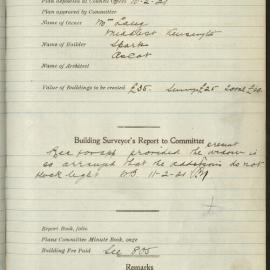 Plan deposited at Council Office 10-2-21
Plan approved by Committee
Name of Owner Mrs Lang
Middlest Kensington
Name of Builder Sparks
Ascot
Name of Architect
Value of Buildings to be erected £35.
Building Surveyor's Report to Committee
provided the window is
so arranged that the additions do not
block light 11-2-21
Report Book, folio
Plans Committee Minute Book, page
Building Fee Paid See 805
Remarks